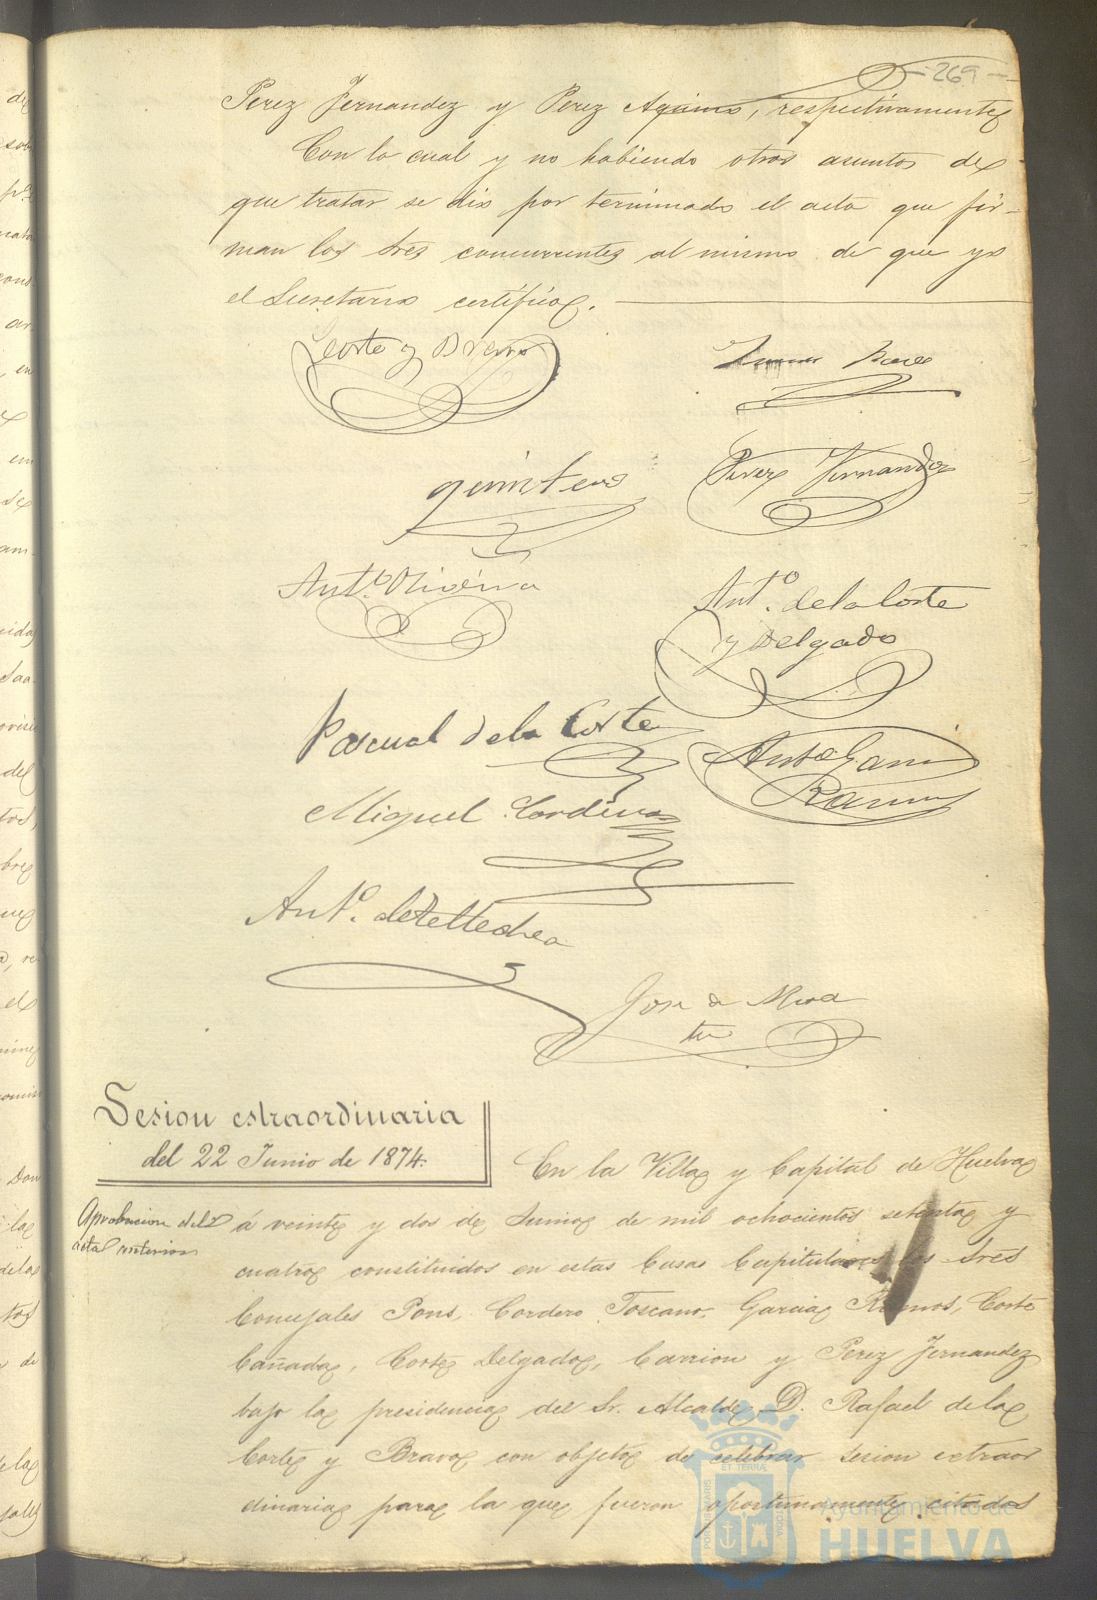 269
Perez Fernandez y Perez Aquino, respectivamente
Con lo cual y no habiendo otros asuntos de
que tratar se dio por terminado el acto que fir-
man los Sres concurrentes al mismo de que yo
el Secretario certifico.
Corte y Bravo
quintero
Perez Fernandez
Antº Oliveira
Antº. de la Corte
y Delgado
Pascual de la Corte
Antº Garcia
Ramos
Miguel Cordero
Antº. de Tellechea
Jose de
Sesion estraordinaria
del 22 Junio de 1874.
En la Villa y Capital de Huelva
Aprobacion del
acta anterior
á veinte y dos de Junio de mil ochocientos setenta y
cuatro constituidos en estas Casas Capitulares los Sres
Concejales Pons, Cordero, Toscano, Garcia Ramos, Corte
Cañada, Corte Delgado, Carrion y Perez Fernandez
bajo la presidencia del Sr. Alcalde D. Rafael de la
Corte y Bravo con objeto de celebrar sesion extraor
dinaria para la que fueron oportunamente citados
Ayuntamiento de
HUELVA